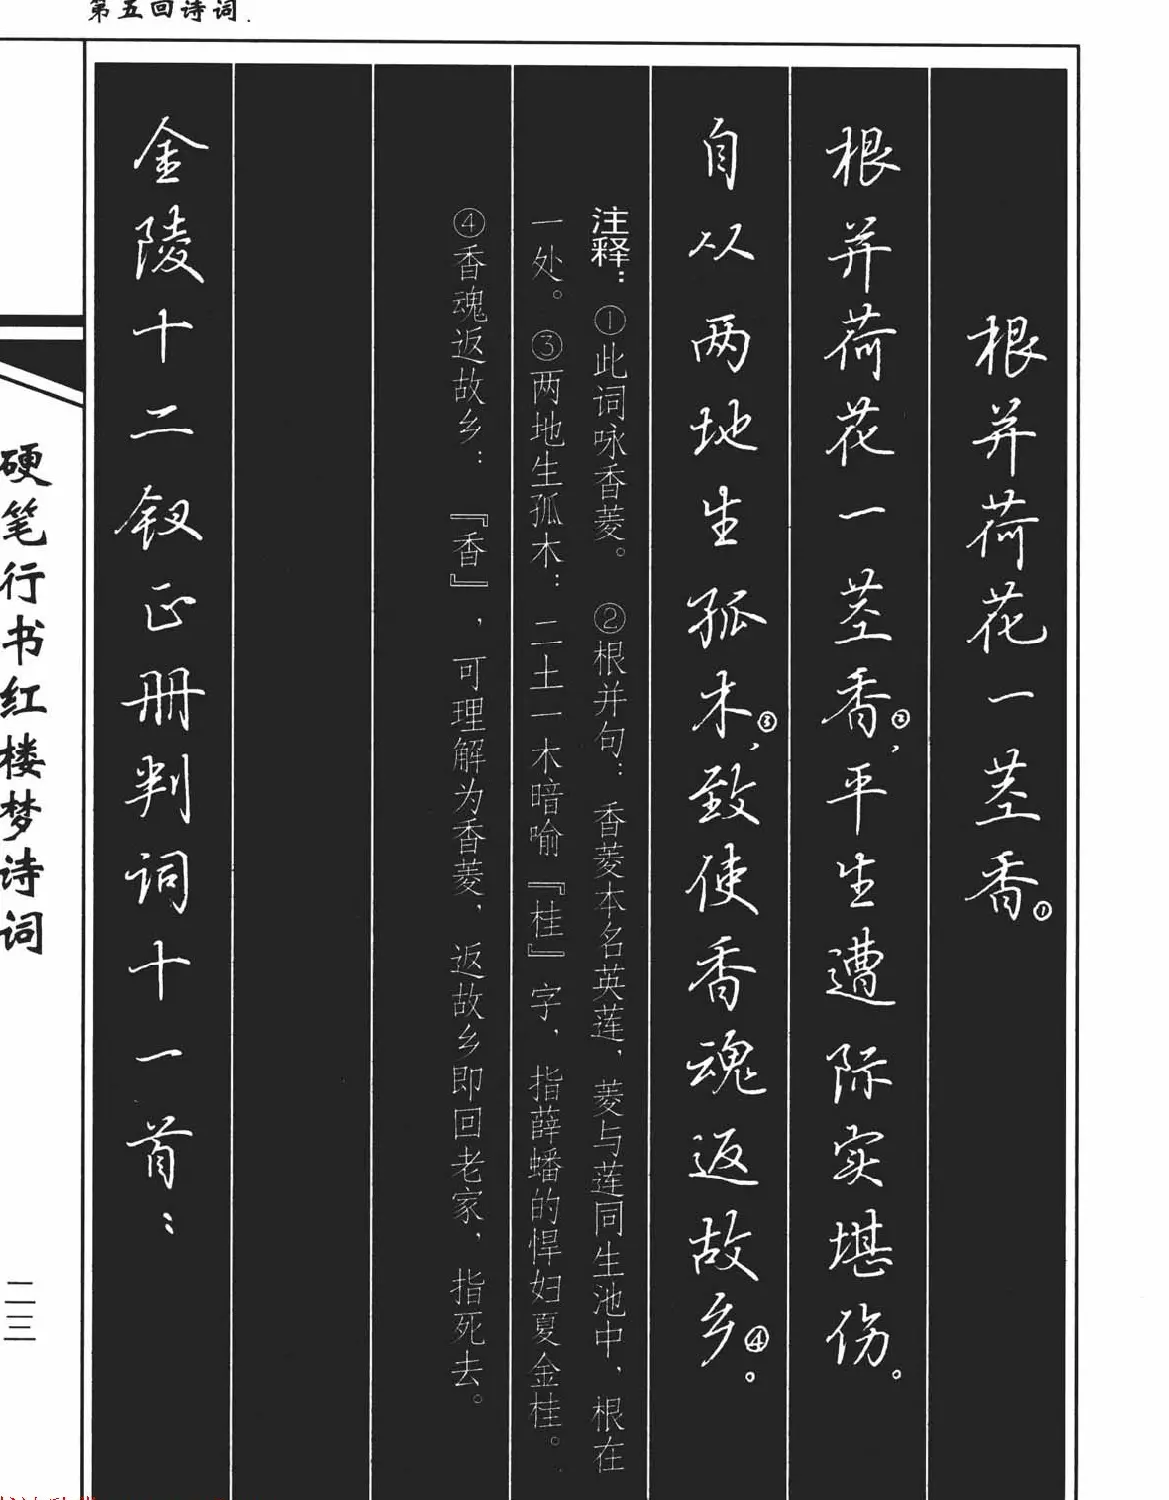 第五回诗词.
根并荷花一茎香①
根并荷花一茎香②，平生遭际实堪伤。
自从两地生孤木③，致使香魂返故乡④。
注释：①此词咏香菱。②根并句：香菱本名英莲，菱与莲同生池中，根在
一处。③两地生孤木：二土一木暗喻『桂』字，指薛蟠的悍妇夏金桂。
④香魂返故乡：『香』，可理解为香菱，返故乡即回老家，指死去。
金陵十二钗正册判词十一首：
硬笔行书红楼梦诗词
二三